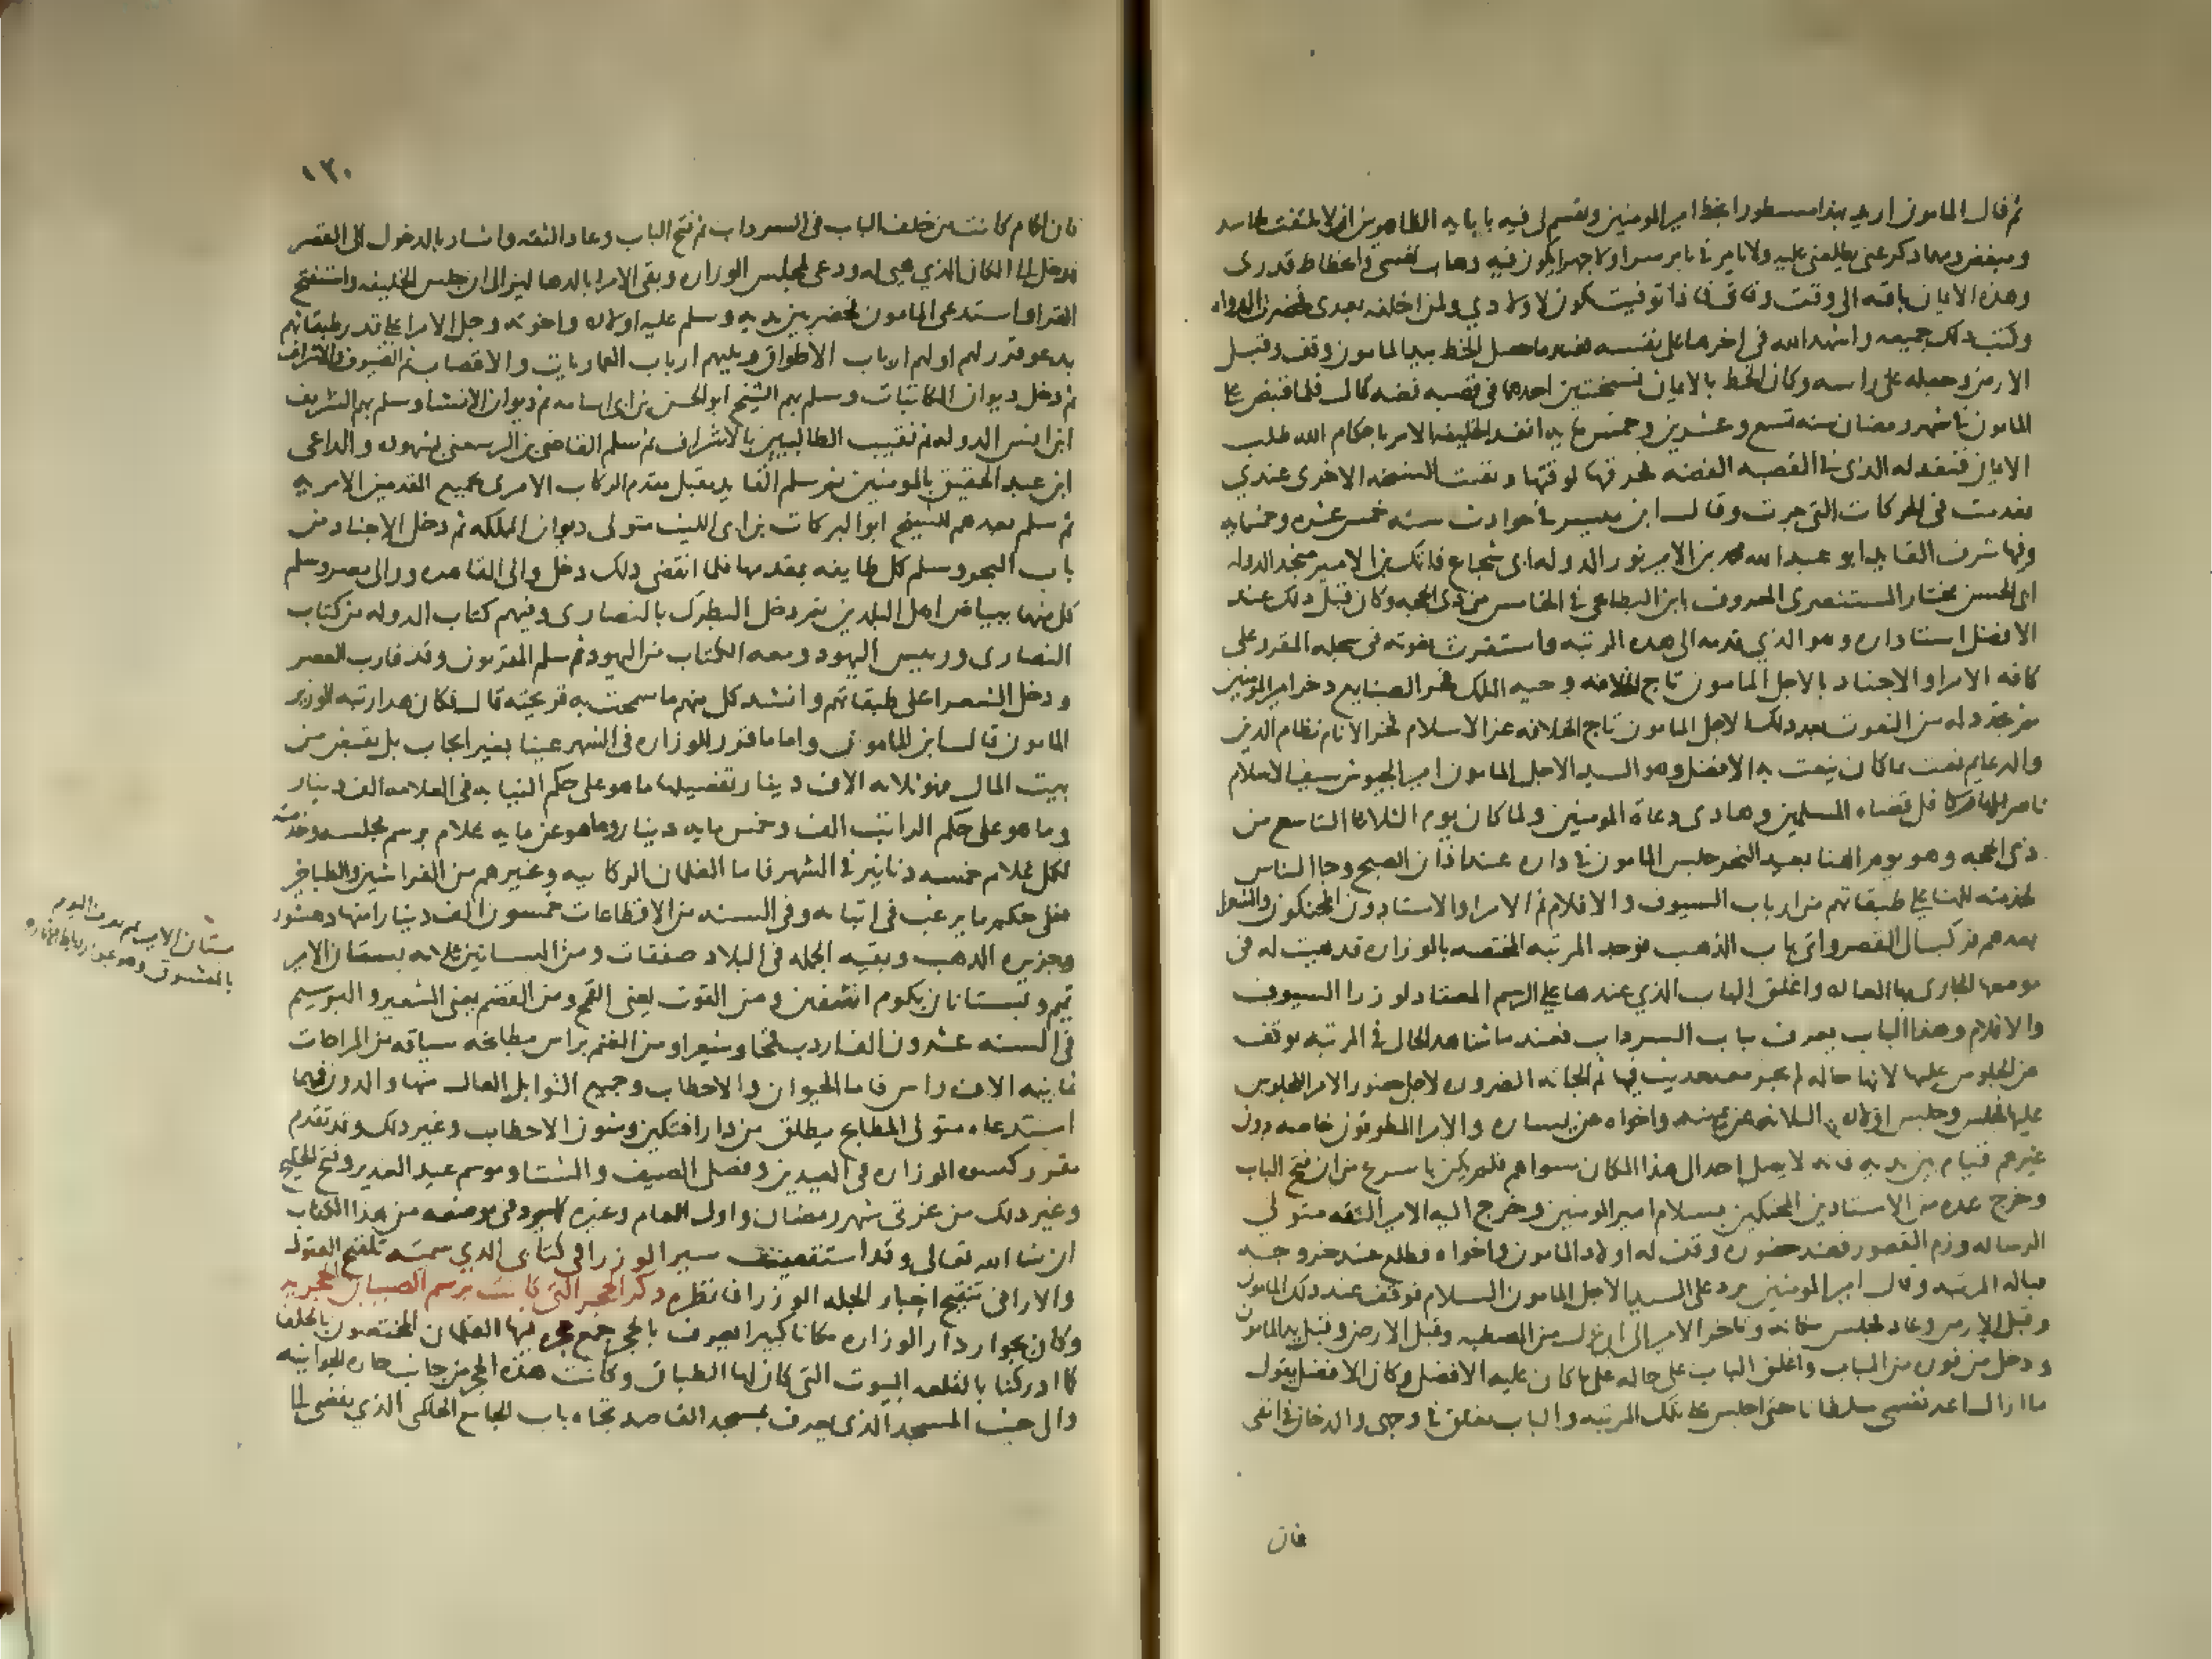 ثم قال المامون اريد بهذا مسطورا بخط امير المومنين ويقسم لى فيه بابايه الطاهرين انى لا التفت لحاسد
ومبغض ومهما ذكر عنى يطلعنى عليه ولا يامر فى بامر سرا ولا جهرا يكون فيه دهاب نفسى وانحطاط قدرى
وهذه الايمان باقيه الى وقت وفاتى فاذا توفيت تكون لاولادي ولمن اخلفه بعدى فحضرت الدواه
وكتب دلك جميعه واشهد الله فى اخرها على نفسه فعند ما حصل الخط بيد المامون وقف وقبل
الارض وجعله على راسه وكان الخط بالايمان نسختين احدهما فى قصبه فضه قال فلما قبض على
المامون فى شهر رمضان سنه تسع وعشرين وخمس مايه انفد الخليفه الامر باحكام الله طلب
الايمان فنفد له الذى فى القصبه الفضه فحرقها لوقتها وبقيت النسخه الاخرى عندي
فعدمت فى الحركات التى جرت وقال ابن ميسر فى حوادث سنه خمس عشره وخمسمايه
وفيها شرف القايد ابو عبد الله محمد بن الامير نور الدوله ابى شجاع فاتك بن الامير منجد الدوله
ابى الحسن مختار المستنصرى المعروف بابن البطايحى فى الخامس من ذى الحجه وكان قبل دلك عند
الافضل استاداره وهو الذي قدمه الى هده المرتبه واستقرت نعوته فى سجله المقرو على
كافه الامرا والاجناد بالاجل المامون تاج الخلافه وجيه الملك فخر الصنايع دخر امير المومنين
ثم تجدد له من النعوت بعد دلك الاجل المامون تاج الخلافه عز الاسلام فخر الانام نظام الدين
والدعايم نعت بما كان ينعت به الافضل وهو السيد الاجل المامون امير الجيوش سيف الاسلام
ناصر الامام كافل قضاه المسلمين وهادى دعاة المومنين ولما كان يوم الثلاثا التاسع من
ذى الحجه وهو يوم الهنا بعيد النحر جلس المامون فى داره عند اذان الصبح وجا الناس
لخدمته للهنا على طبقاتهم من ارباب السيوف والاقلام ثم الامرا والاستادون المحنكون والشعرا
بعدهم فركب الى القصر واتى باب الذهب فوجد المرتبه المختصه بالوزاره قد هييت له فى
موضعها الجارى بها العاده واغلق الباب الذي عندها على الرسم المعتاد لوزرا السيوف
والاقلام وهذا الباب يعرف بباب السرداب فعند ما شاهد الحال فى المرتبه توقف
عن الجلوس عليها لانها حاله لم يجر معه حديث فيها ثم الجاته الضروره لاجل حضور الامرا للجلوس
عليها فجلس وجلس اولاده الثلاثه عن يمينه واخواه عن يساره والامرا المطوقون خاصه دون
غيرهم قيام بين يديه فانه لا يصل احد الى هذا المكان سواهم فلم يكن باسرع من ان فتح الباب
وخرج عده من الاستادين المحنكين بسلام امير المومنين وخرج اليه الامير الثقه متولي
الرساله وزم القصور فعند حضوره وقف له اولاد المامون واخواه فطلع عند خروجه
قباله المرتبه وقال امير المومنين يرد على السيد الاجل المامون السلام فوقف عند دلك المامون
وقبل الارض وعاد فجلس مكانه وتاخر الامير الى ان نزل من المصطبه وقبل الارض وقبل يد المامون
ودخل من فوره من الباب واغلق الباب على حاله على ما كان عليه الافضل وكان الافضل يقول
ما ازال اعد نفسى سلطانا حتى اجلس على تلك المرتبه والباب يغلق فى وجهى والدخان فى انفى
فان
١٣٠
فان الحمام كانت من خلف الباب فى السرداب ثم فتح الباب وعاد الثقه واشار بالدخول الى القصر
فدخل الى المكان الذي هيى له ودعى لمجلس الوزاره وبقى الامرا بالدهاليز الى ان جلس الخليفه واستفتح
القرا واستدعى المامون فحضر بين يديه وسلم عليه اولاده واخوته ودخل الامرا على قدر طبقاتهم
ثم دخل ديوان المكاتبات وسلم بهم الشيخ ابو الحسن بن ابى اسامه ثم ديوان الانشا وسلم بهم الشريف
ابن انس الدوله ثم نقيب الطالبيين بالاشراف ثم سلم القاضى بن الرسعنى بشهوده والداعى
ابن عبد الحقيق بالمومنين ثم سلم القايد مقبل مقدم الركاب الامرى بجميع المقدمين الامريه
ثم سلم بعدهم الشيخ ابو البركات بن ابى الليث متولى ديوان المملكه ثم دخل الاجناد من
باب البحر وسلم كل طايفه بمقدمها فلما انقضى دلك دخل والى القاهره ووالى مصر وسلم
كل منهما ببياض اهل البلدين ثم دخل البطرك بالنصارى وفيهم كتاب الدوله من كتاب
النصارى ورييس اليهود ومعه الكتاب من اليهود ثم سلم المقربون وقد قارب العصر
ودخل الشعرا على طبقاتهم وانشد كل منهم ما سمحت به قريحته قال فكان هدا رتبه الوزير
المامون قال ابن المامون واما ما قرر للوزاره فى الشهر عينا بغير ايجاب بل يقبض من
بيت المال فهو ثلاثه الاف دينار تفصيلها ما هو على حكم النيابه فى العلامه الف دينار
وما هو على حكم الراتب الف وخمس مايه دينار وما هو عن مايه غلام برسم مجلسه وخدمته
لكل غلام خمسه دنانير فى الشهر فاما الغلمان الركابيه وغيرهم من الفراشين والطباخين
فعلى حكم ما يرغب فى اثباته وفى السنه من الاقطاعات خمسون الف دينار منها دهشور
وجزيره الدهب وبقيه الجمله فى البلاد صفقات ومن البساتين ثلاثه بستان الامير
تميم وبستانان بكوم اشفين ومن القوت يعنى القمح ومن القضم يعنى الشعير والبرسيم
فى السنه عشرون الف اردب قمحا وشعيرا ومن الغنم براس مطابخه سياقه من المراحات
ثمانيه الاف راس فاما الحيوان والاحطاب وجميع التوابل العال منها والدون فمهما
استدعاه متولى المطابخ يطلق من دار افتكين وشون الاحطاب وغير دلك وقد تقدم
مقرر كسوه الوزاره فى العيدين وفصل الصيف والشتا وموسم عيد الغدير وفتح الخليج
وغير دلك من غرتى شهر رمضان واول العام وغيره كما سيرد فى موضعه من هذا الكتاب
ان شا الله تعالى وقد استقصيت سير الوزرا فى كتابى الدي سميته تلقيح العقول
والارا فى تنقيح اخبار الجله الوزرا فانظره دكر الحجر التى كانت برسم الصبيان الحجريه
وكان بجوار دار الوزاره مكانا كبيرا يعرف بالحجر جمع حجره فيها الغلمان المختصون بالخلفا
كما ادركنا بالقلعه البيوت التى كان لها الطباق وكانت هذه الحجر من جانب حاره الجوانيه
والى حيث المسجد الذى يعرف بمسجد القاصد تجاه باب الجامع الحاكمى الذي يفضى الى
بستان الامير تميم يعرف اليوم
بالمعشوق وهو بجوار رباط الاثار